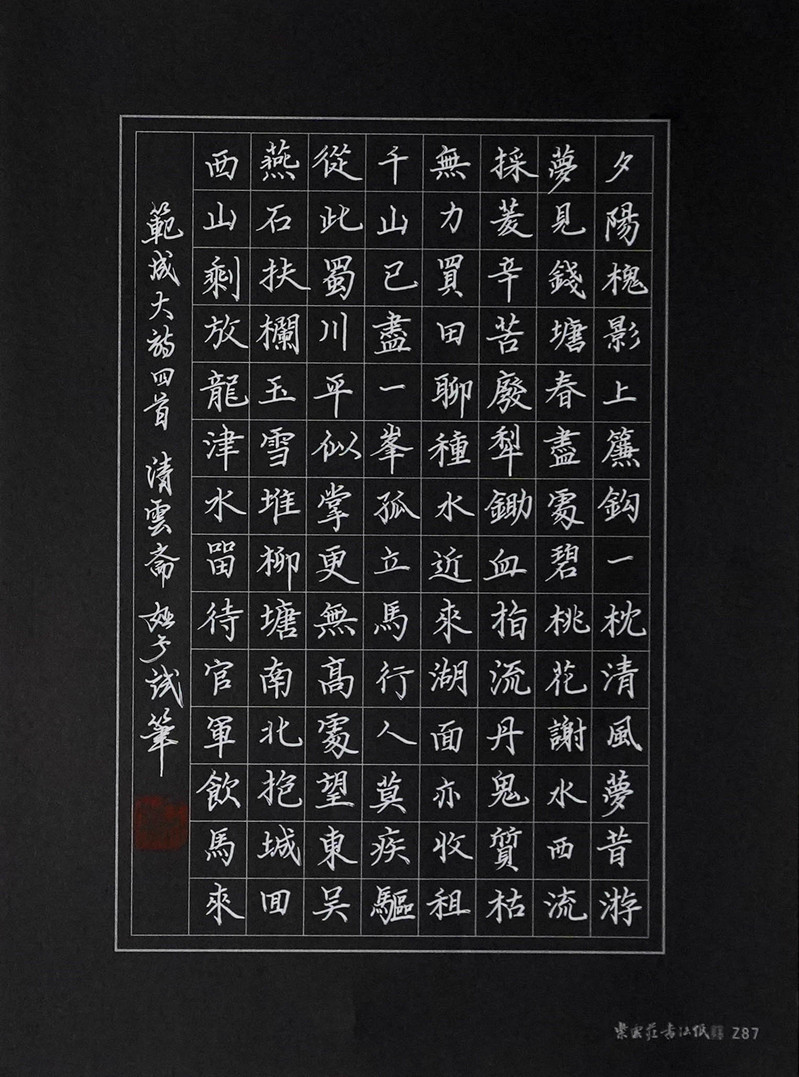 夕陽槐影上簾鈎一枕清風夢昔游
夢見錢塘春盡處碧桃花謝水西流
採菱辛苦廢犁鋤血指流丹鬼質枯
無力買田聊種水近來湖面亦收租
千山已盡一峯孤立馬行人莫疾驅
從此蜀川平似掌更無高處望東吴
燕石扶欄玉雪堆柳塘南北抱城囬
西山剩放龍津水畱待官軍飲馬來
範成大詩四首 清雲斎 試筆
紫雲莊書法紙 Z87